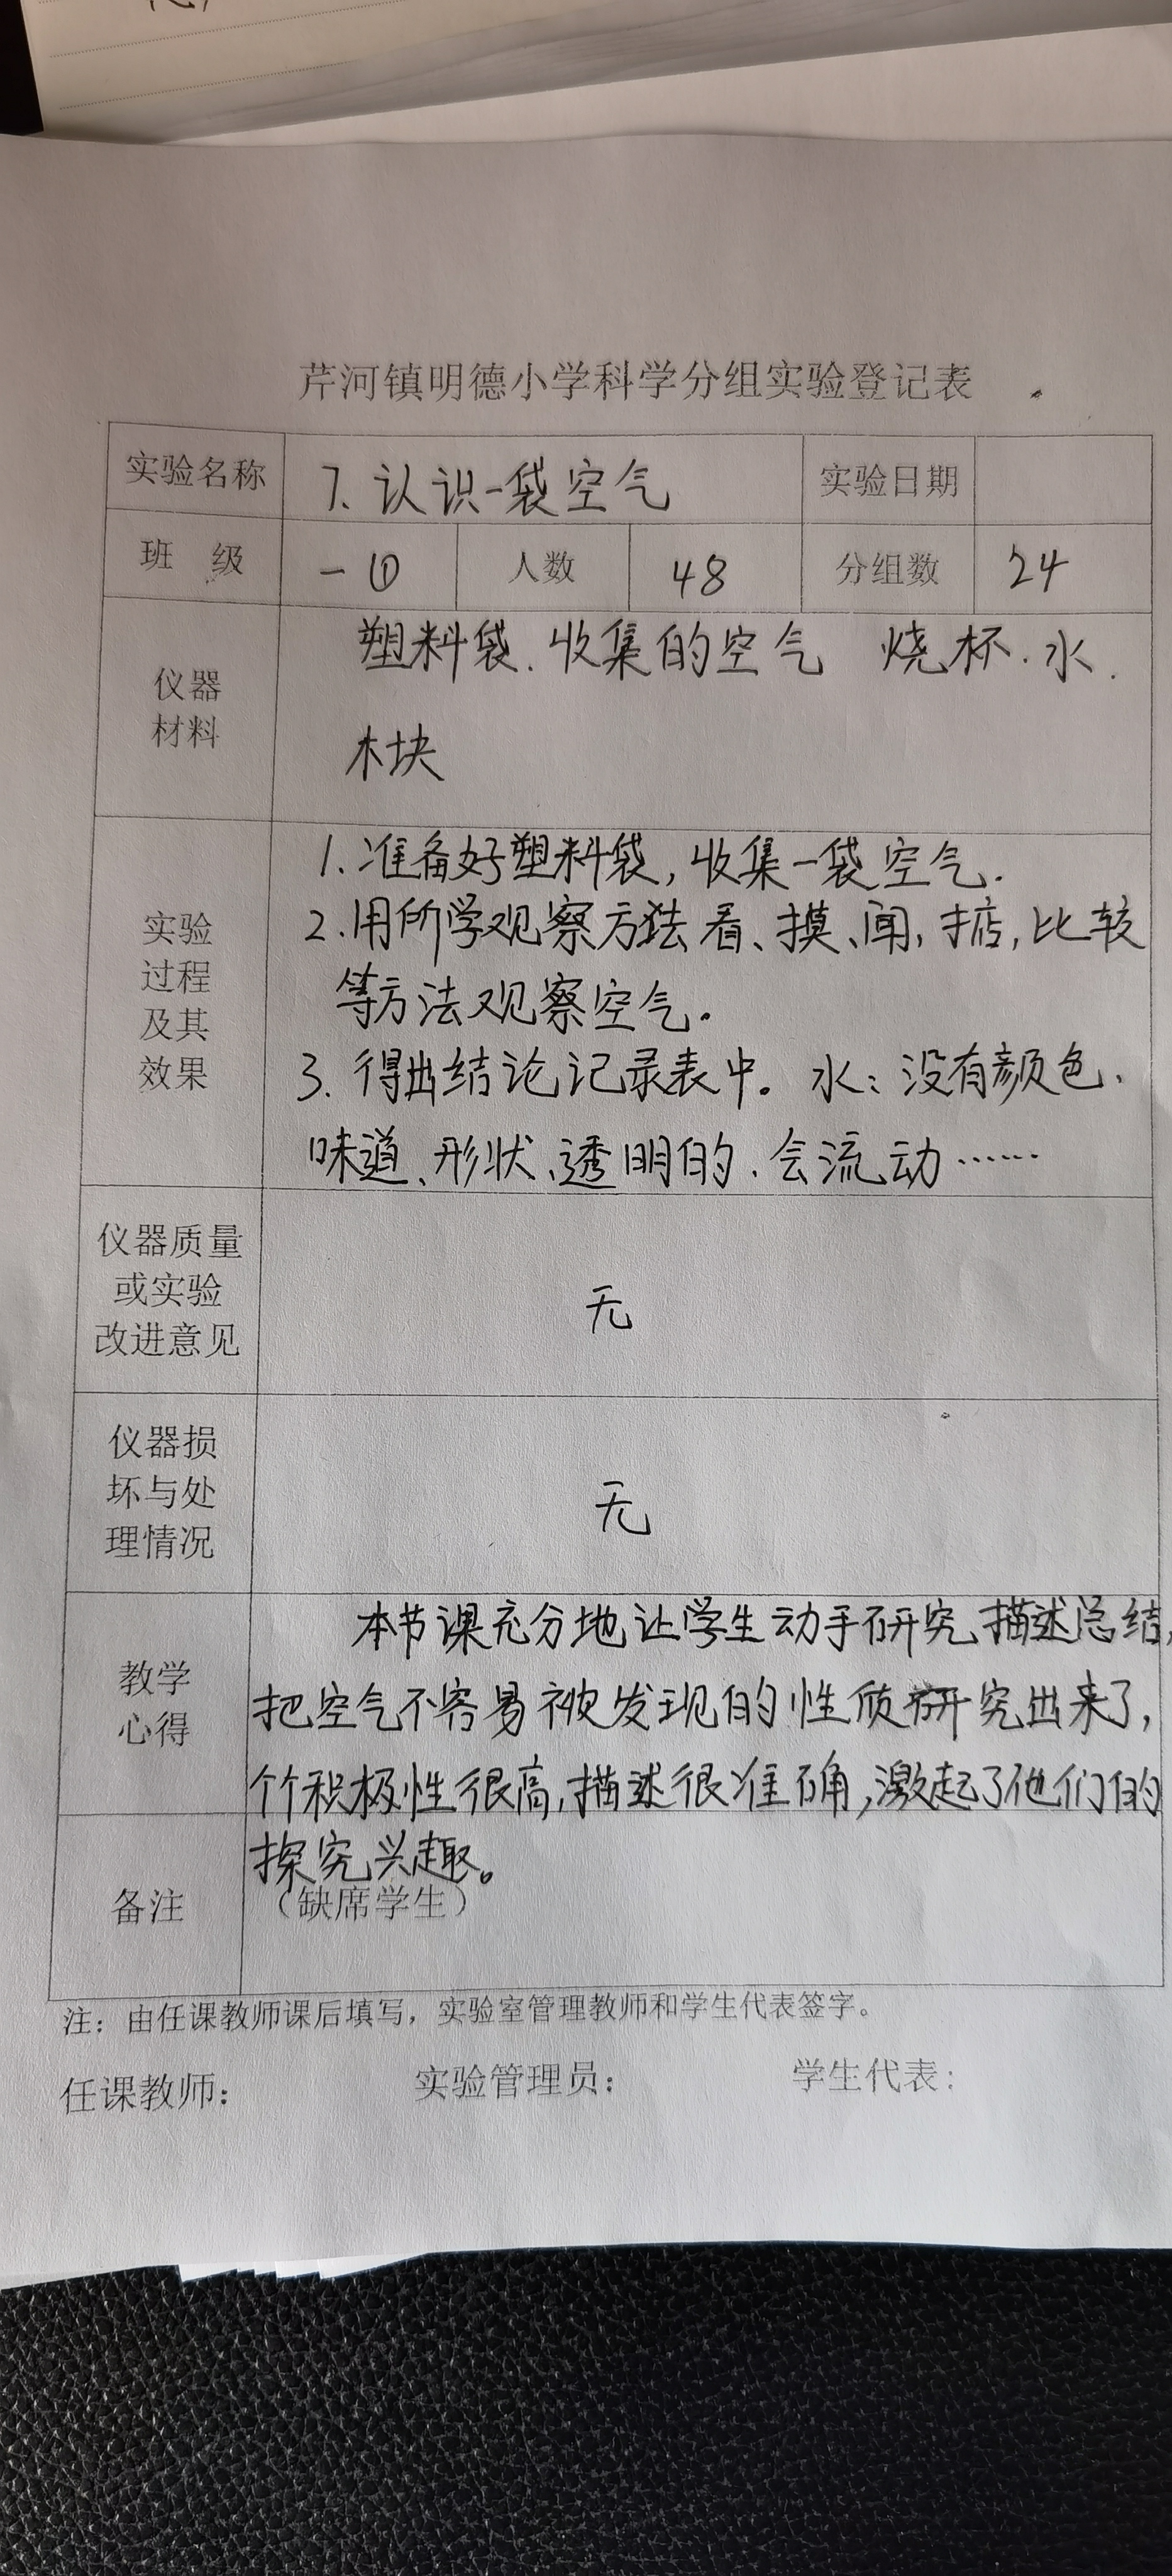 芹河镇明德小学科学分组实验登记表
实验名称 7.认识一袋空气 实验日期
班 级 一① 人数 48 分组数 24
仪器
材料
塑料袋.收集的空气 烧杯.水.
木块
实验
过程
及其
效果
1.准备好塑料袋,收集一袋空气.
2.用所学观察方法看、摸、闻,掂,比较
等方法观察空气。
3.得出结论记录表中。水:没有颜色、
味道、形状、透明的、会流动……
仪器质量
或实验
改进意见
无
仪器损
坏与处
理情况
无
教学
心得
本节课充分地让学生动手研究,描述总结,
把空气不容易被发现的性质研究出来了,
个个积极性很高,描述很准确,激起了他们的
探究兴趣。
备注
（缺席学生）
注：由任课教师课后填写，实验室管理教师和学生代表签字。
任课教师： 实验管理员： 学生代表：